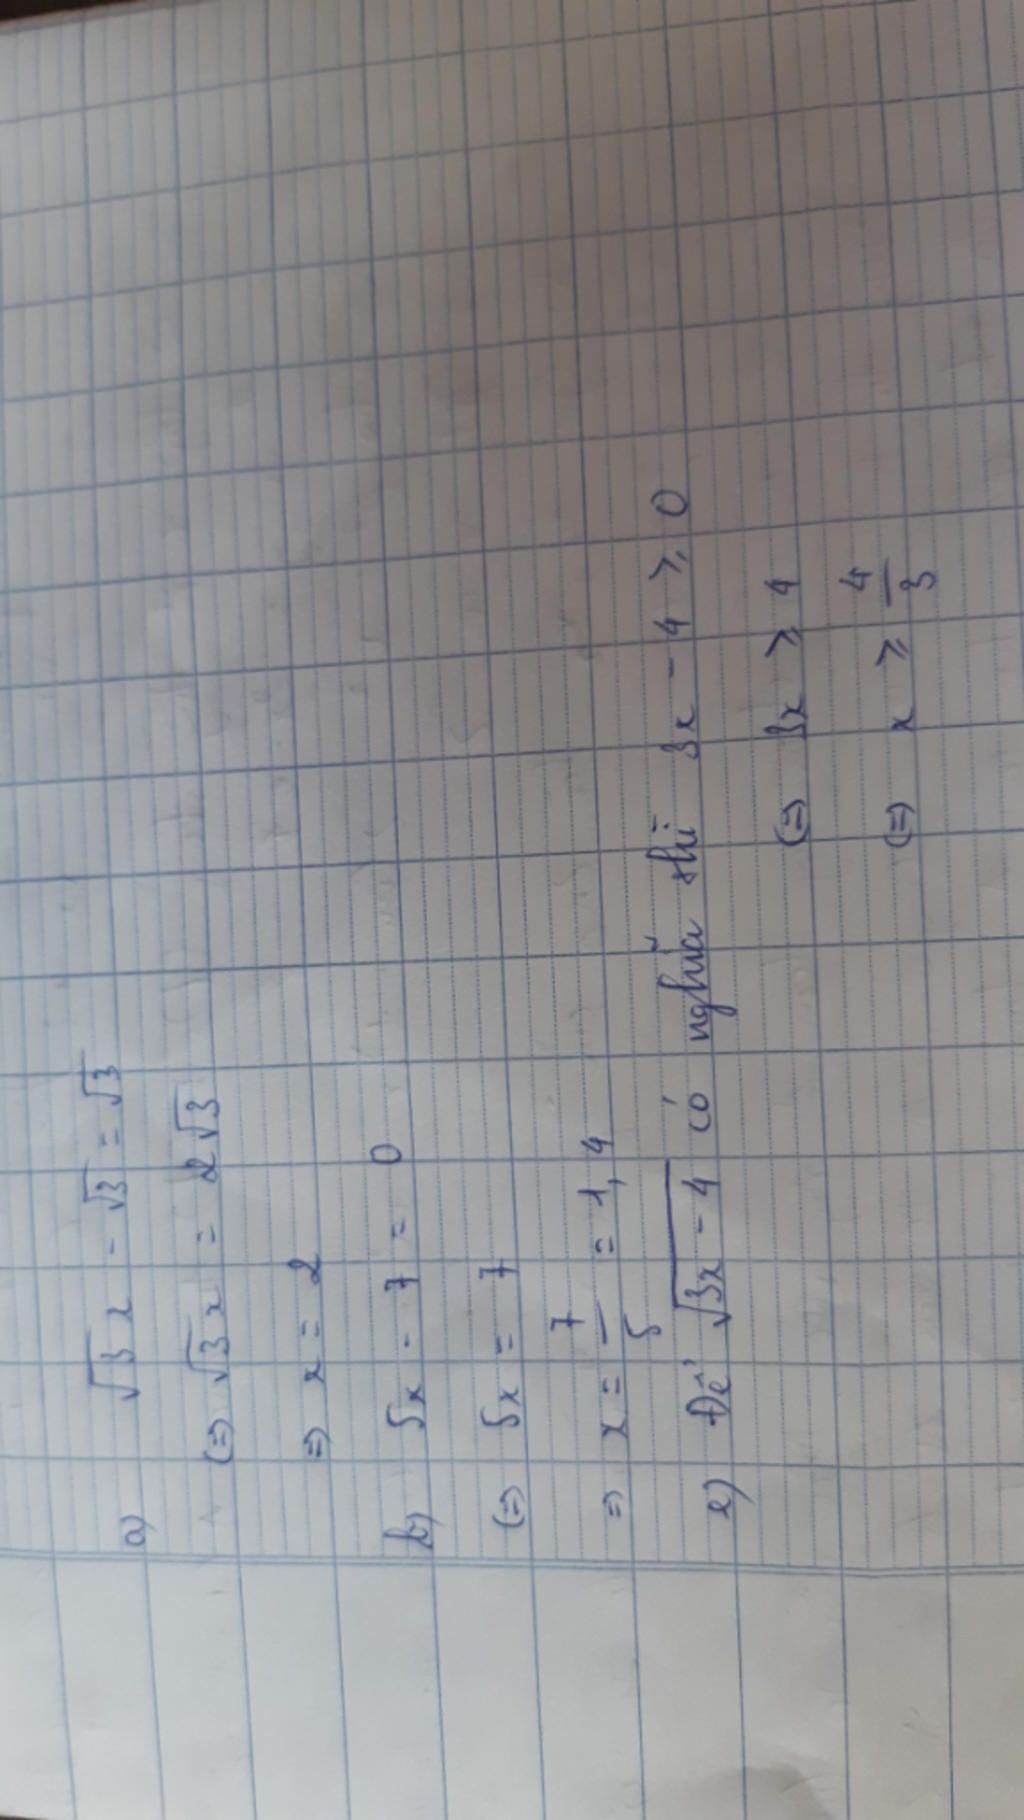 a) √3 x - √3 = √3
(=) √3 x = 2√3
=) x = 2
b) 5x - 7 = 0
(=) 5x = 7
=) x = 7/5 = 1,4
e) Để √3x - 4 có nghĩa thì 3x - 4 ≥ 0
(=) 3x ≥ 4
(=) x ≥ 4/3